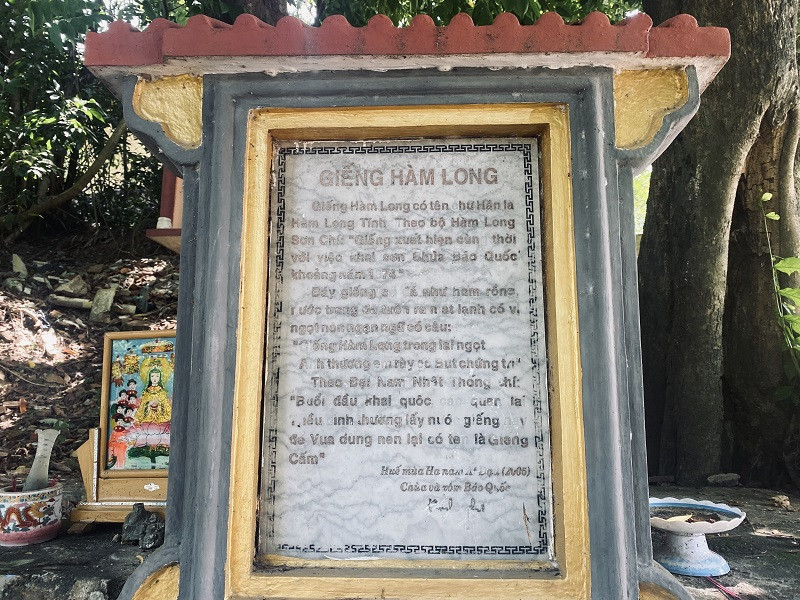 GIẾNG HÀM LONG
Giếng Hàm Long có tên chữ Hán là
Hàm Long Tỉnh Theo bộ Hàm Long
Sơn Chí: "Giếng xuất hiện cùng thời
với việc khai sơn Chùa Báo Quốc
khoảng năm
Đáy giếng có đá như hàm rồng,
nước trong mát lạnh có vị
ngọt ngạn ngữ có câu:
"Giếng Hàm Long trong lại ngọt
Anh thương em rày có Bụt chứng tri"
Theo Đại Nam Nhất Thống chí:
"Buổi đầu khai quốc các quan lại
Điều binh thường lấy nước giếng này
để Vua dùng nên lại có tên là Giếng
Cấm"
Huế mùa Hạ năm (2006)
Chùa và xóm Báo Quốc